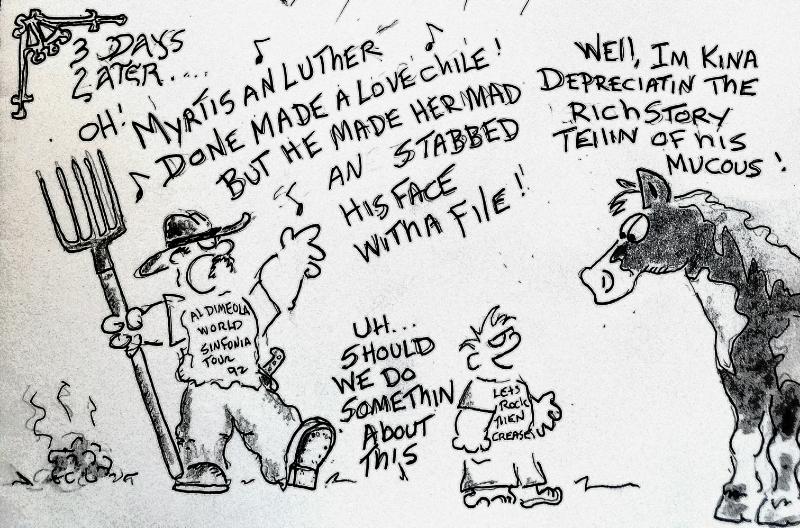 3 DAYS
LATER....
OH! MYRTIS AN LUTHER
DONE MADE A LOVE CHILE!
BUT HE MADE HER MAD
AN STABBED
HIS FACE
WITH A FILE!
WELL, IM KINA
DEPRECIATIN THE
RICH STORY
TELLIN OF HIS
MUCOUS!
AL DIMEOLA
WORLD
SINFONIA
TOUR
92
UH...
SHOULD
WE DO
SOMETHIN
ABOUT
THIS
LETS
ROCK
THEN
CREASE